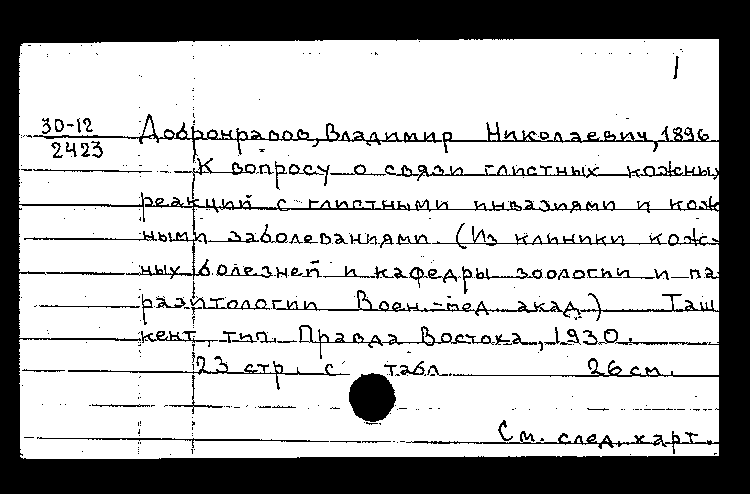 1
30-12
2423
Добронравов, Владимир Николаевич, 1896
К вопросу о связи глистных кожных
реакций с глистными инвазиями и кож
ными заболеваниями. (Из клиники кож-
ных болезней и кафедры зоологии и па
разитологии Воен.-мед акад.) Таш
кент, тип. Правда Востока, 1930.
23 стр. с табл 26 см.
См. след. карт.